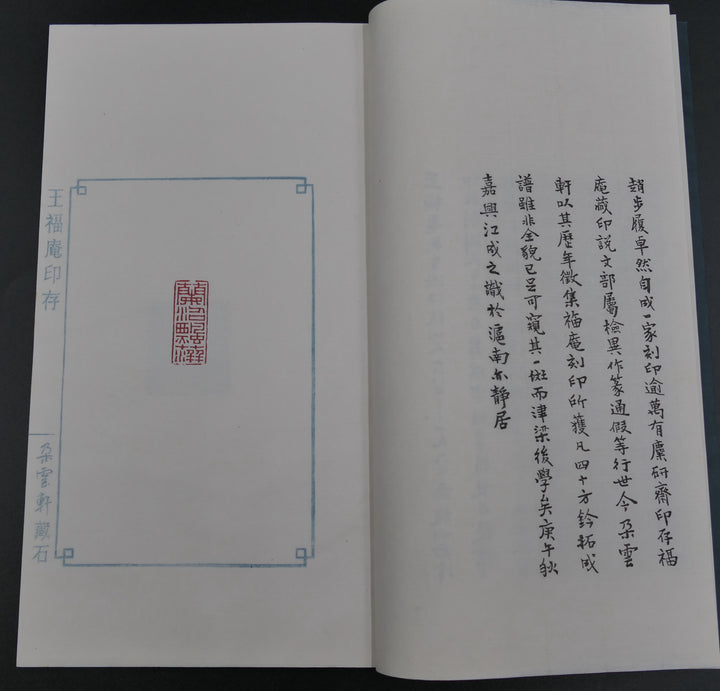 趙步履卓然自成一家刻印逾萬有麋研齋印存福
庵藏印說文部屬檢異作篆通假等行世今朵雲
軒以其歷年徵集福庵刻印所獲凡四十方鈐拓成
譜雖非全貌已足可窺其一斑而津梁後學矣庚午秋
嘉興江成之識於滬南亦靜居
王福庵印存
朵雲軒藏石